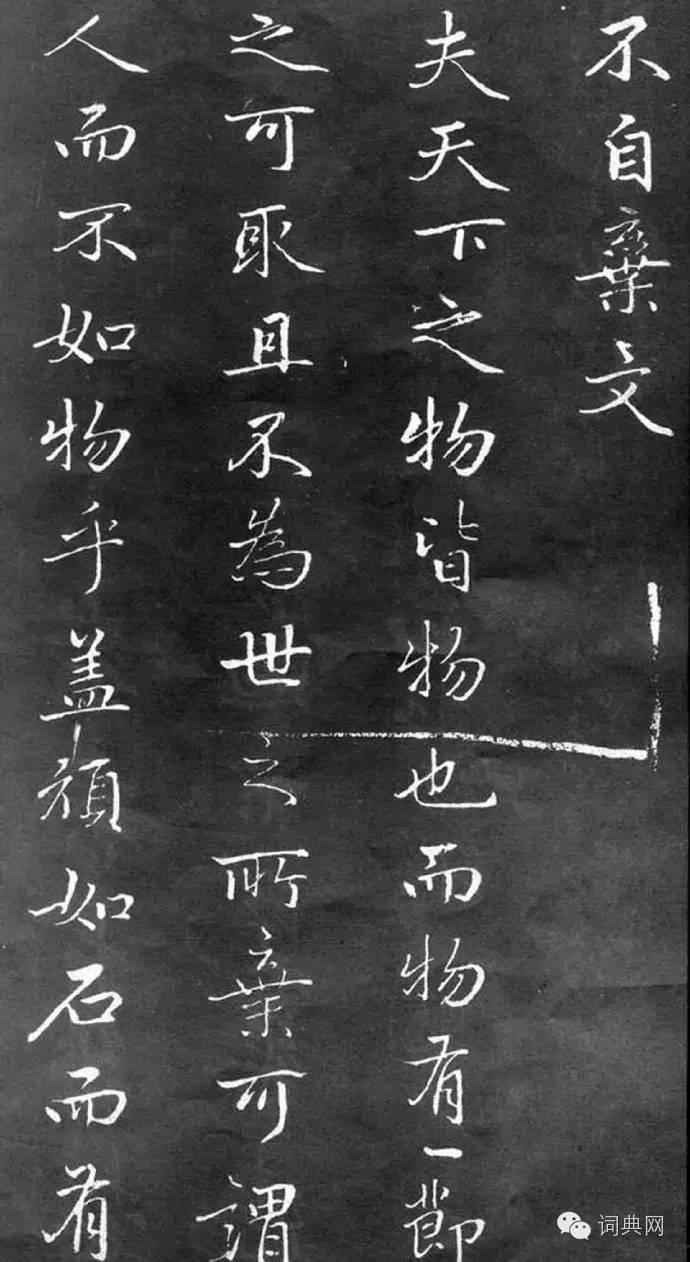 不自棄文
夫天下之物皆物也而物有一節
之可取且不為世之所棄可謂
人而不如物乎盖頑如石而有
词典网